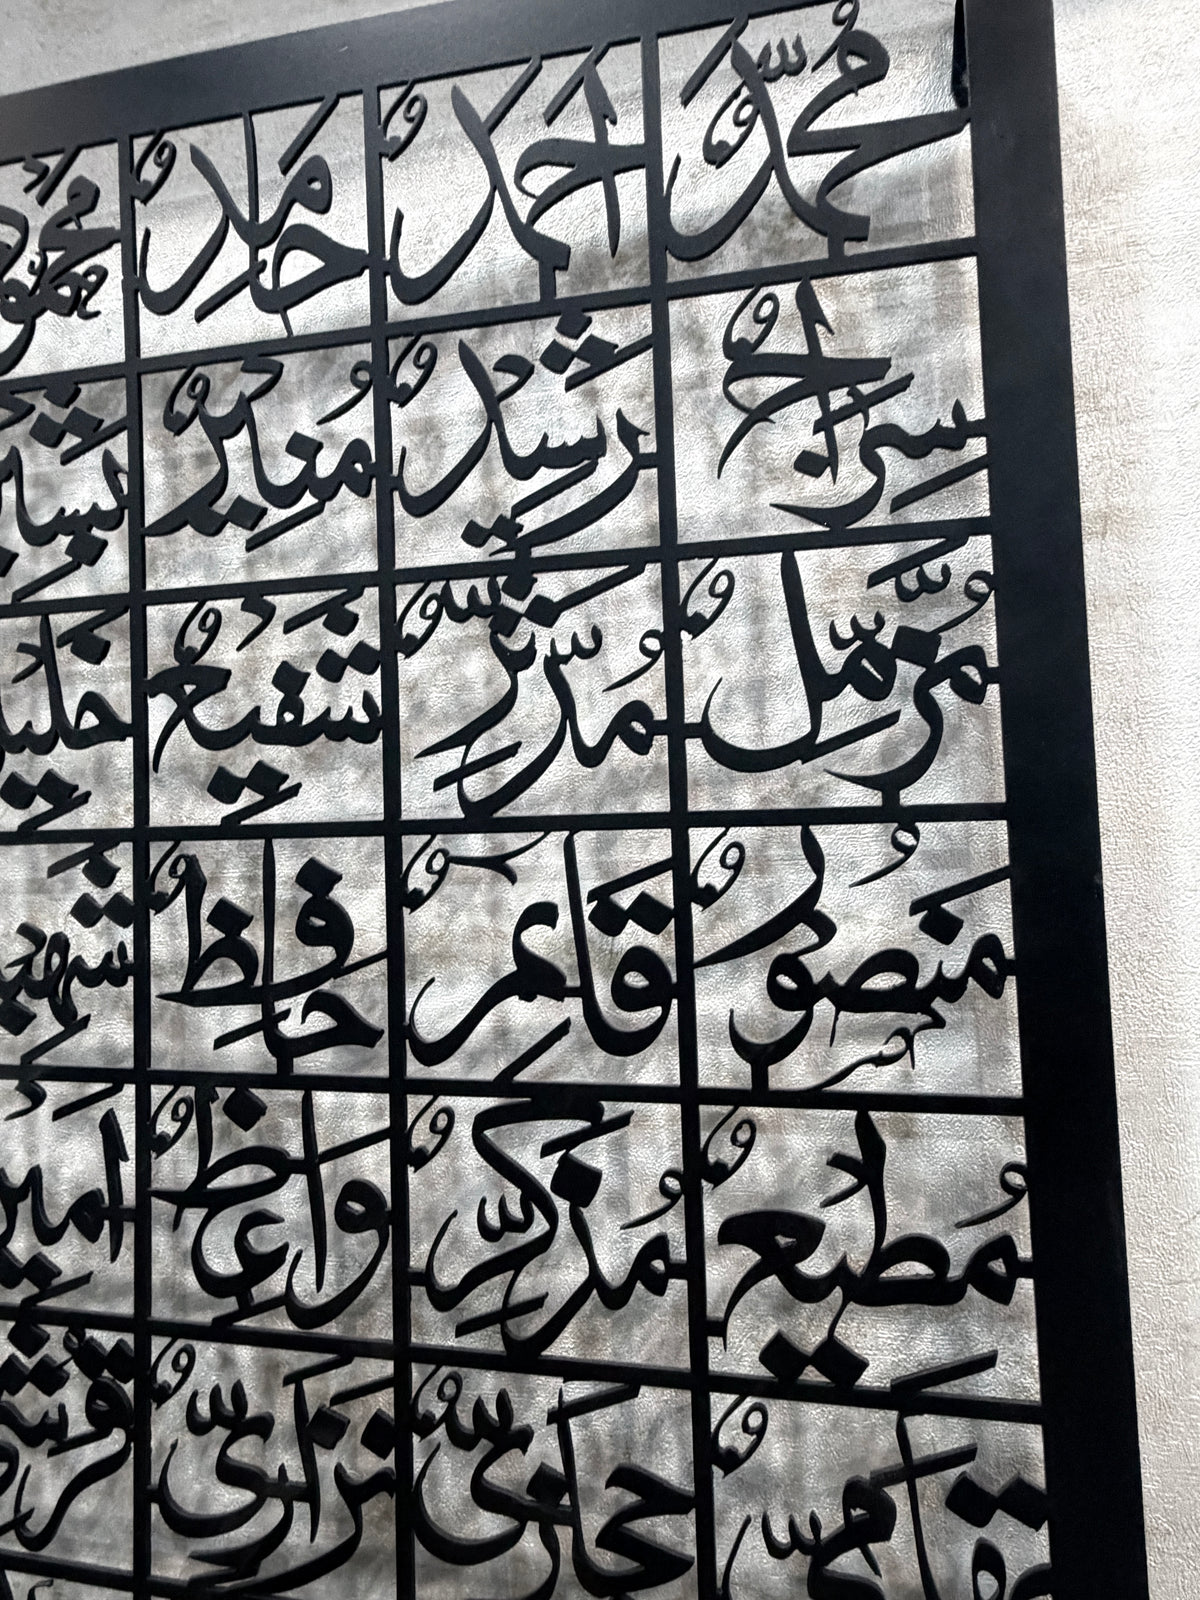 مُحَمَّدٌ اَحْمَدٌ حَامِدٌ مَحْمُوْ
سِرَاجٌ رَشِيْدٌ مُنِيْرٌ بَشِيْ
مُزَّمِّلٌ مُدَّثِّرٌ شَفِيْعٌ خَلِيْ
مَنْصُوْرٌ قَائِمٌ حَافِظٌ شَهِيْ
مُطِيْعٌ مُذَكِّرٌ وَاعِظٌ اَمِيْنٌ
حِجَازِيٌّ نِزَارِيٌّ